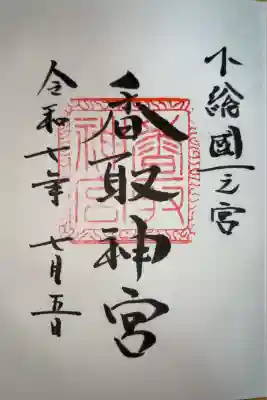 下総國一之宮
香取神宮
香取神宮
令和七年 七月五日